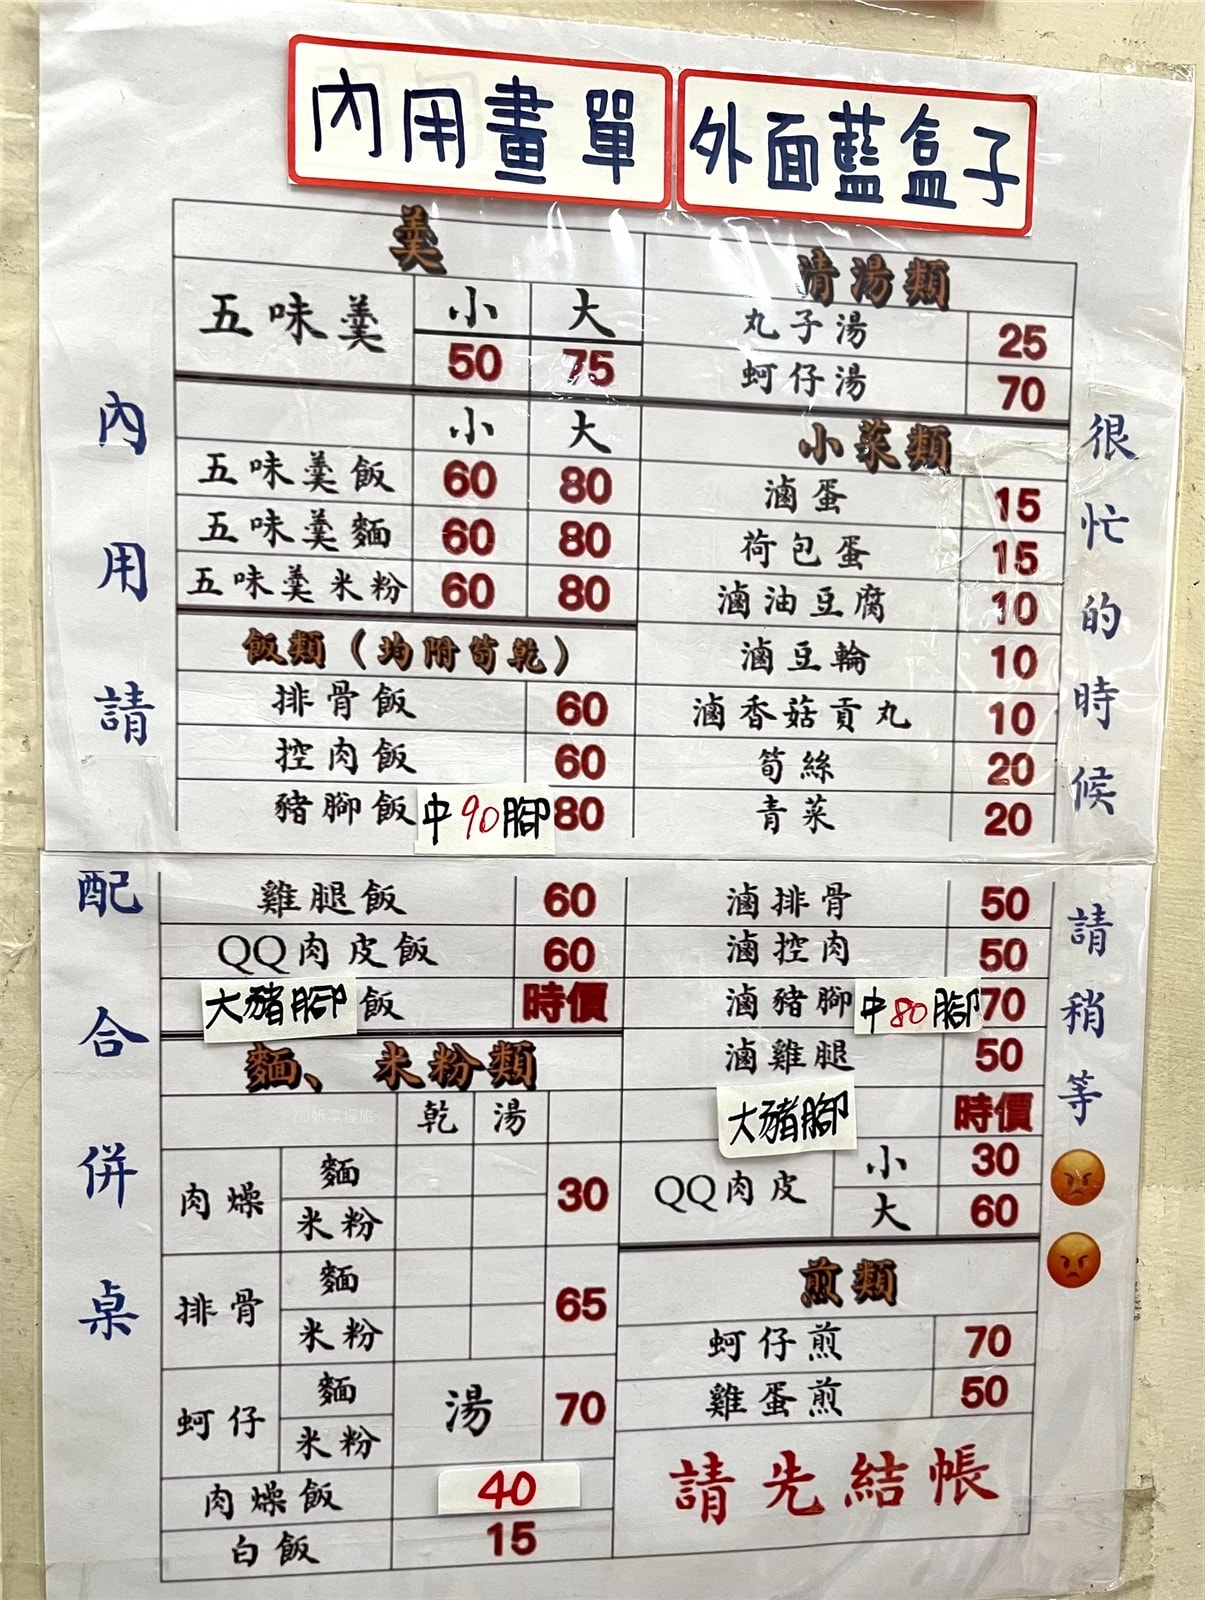 內用畫單 外面藍盒子
內用請配合併桌
羹
五味羹 小 大
50 75
小 大
五味羹飯 60 80
五味羹麵 60 80
五味羹米粉 60 80
飯類（均附筍乾）
排骨飯 60
控肉飯 60
豬腳飯 中90腳 80
雞腿飯 60
QQ肉皮飯 60
大豬腳飯 時價
麵、米粉類
乾 湯
肉燥 麵 30
米粉
排骨 麵 65
米粉
蚵仔 麵 湯 70
米粉
肉燥飯 40
白飯 15
清湯類
丸子湯 25
蚵仔湯 70
小菜類
滷蛋 15
荷包蛋 15
滷油豆腐 10
滷豆輪 10
滷香菇貢丸 10
筍絲 20
青菜 20
滷排骨 50
滷控肉 50
滷豬腳 中80腳 70
滷雞腿 50
大豬腳 時價
QQ肉皮 小 30
大 60
煎類
蚵仔煎 70
雞蛋煎 50
請先結帳
很忙的時候請稍等